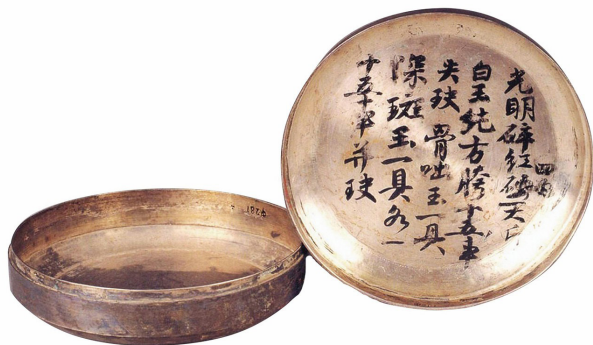 光明碎红砂一大斤四两
白玉纯方胯十五事
失玦骨咄玉一具
深斑玉一具各一
十五事并玦